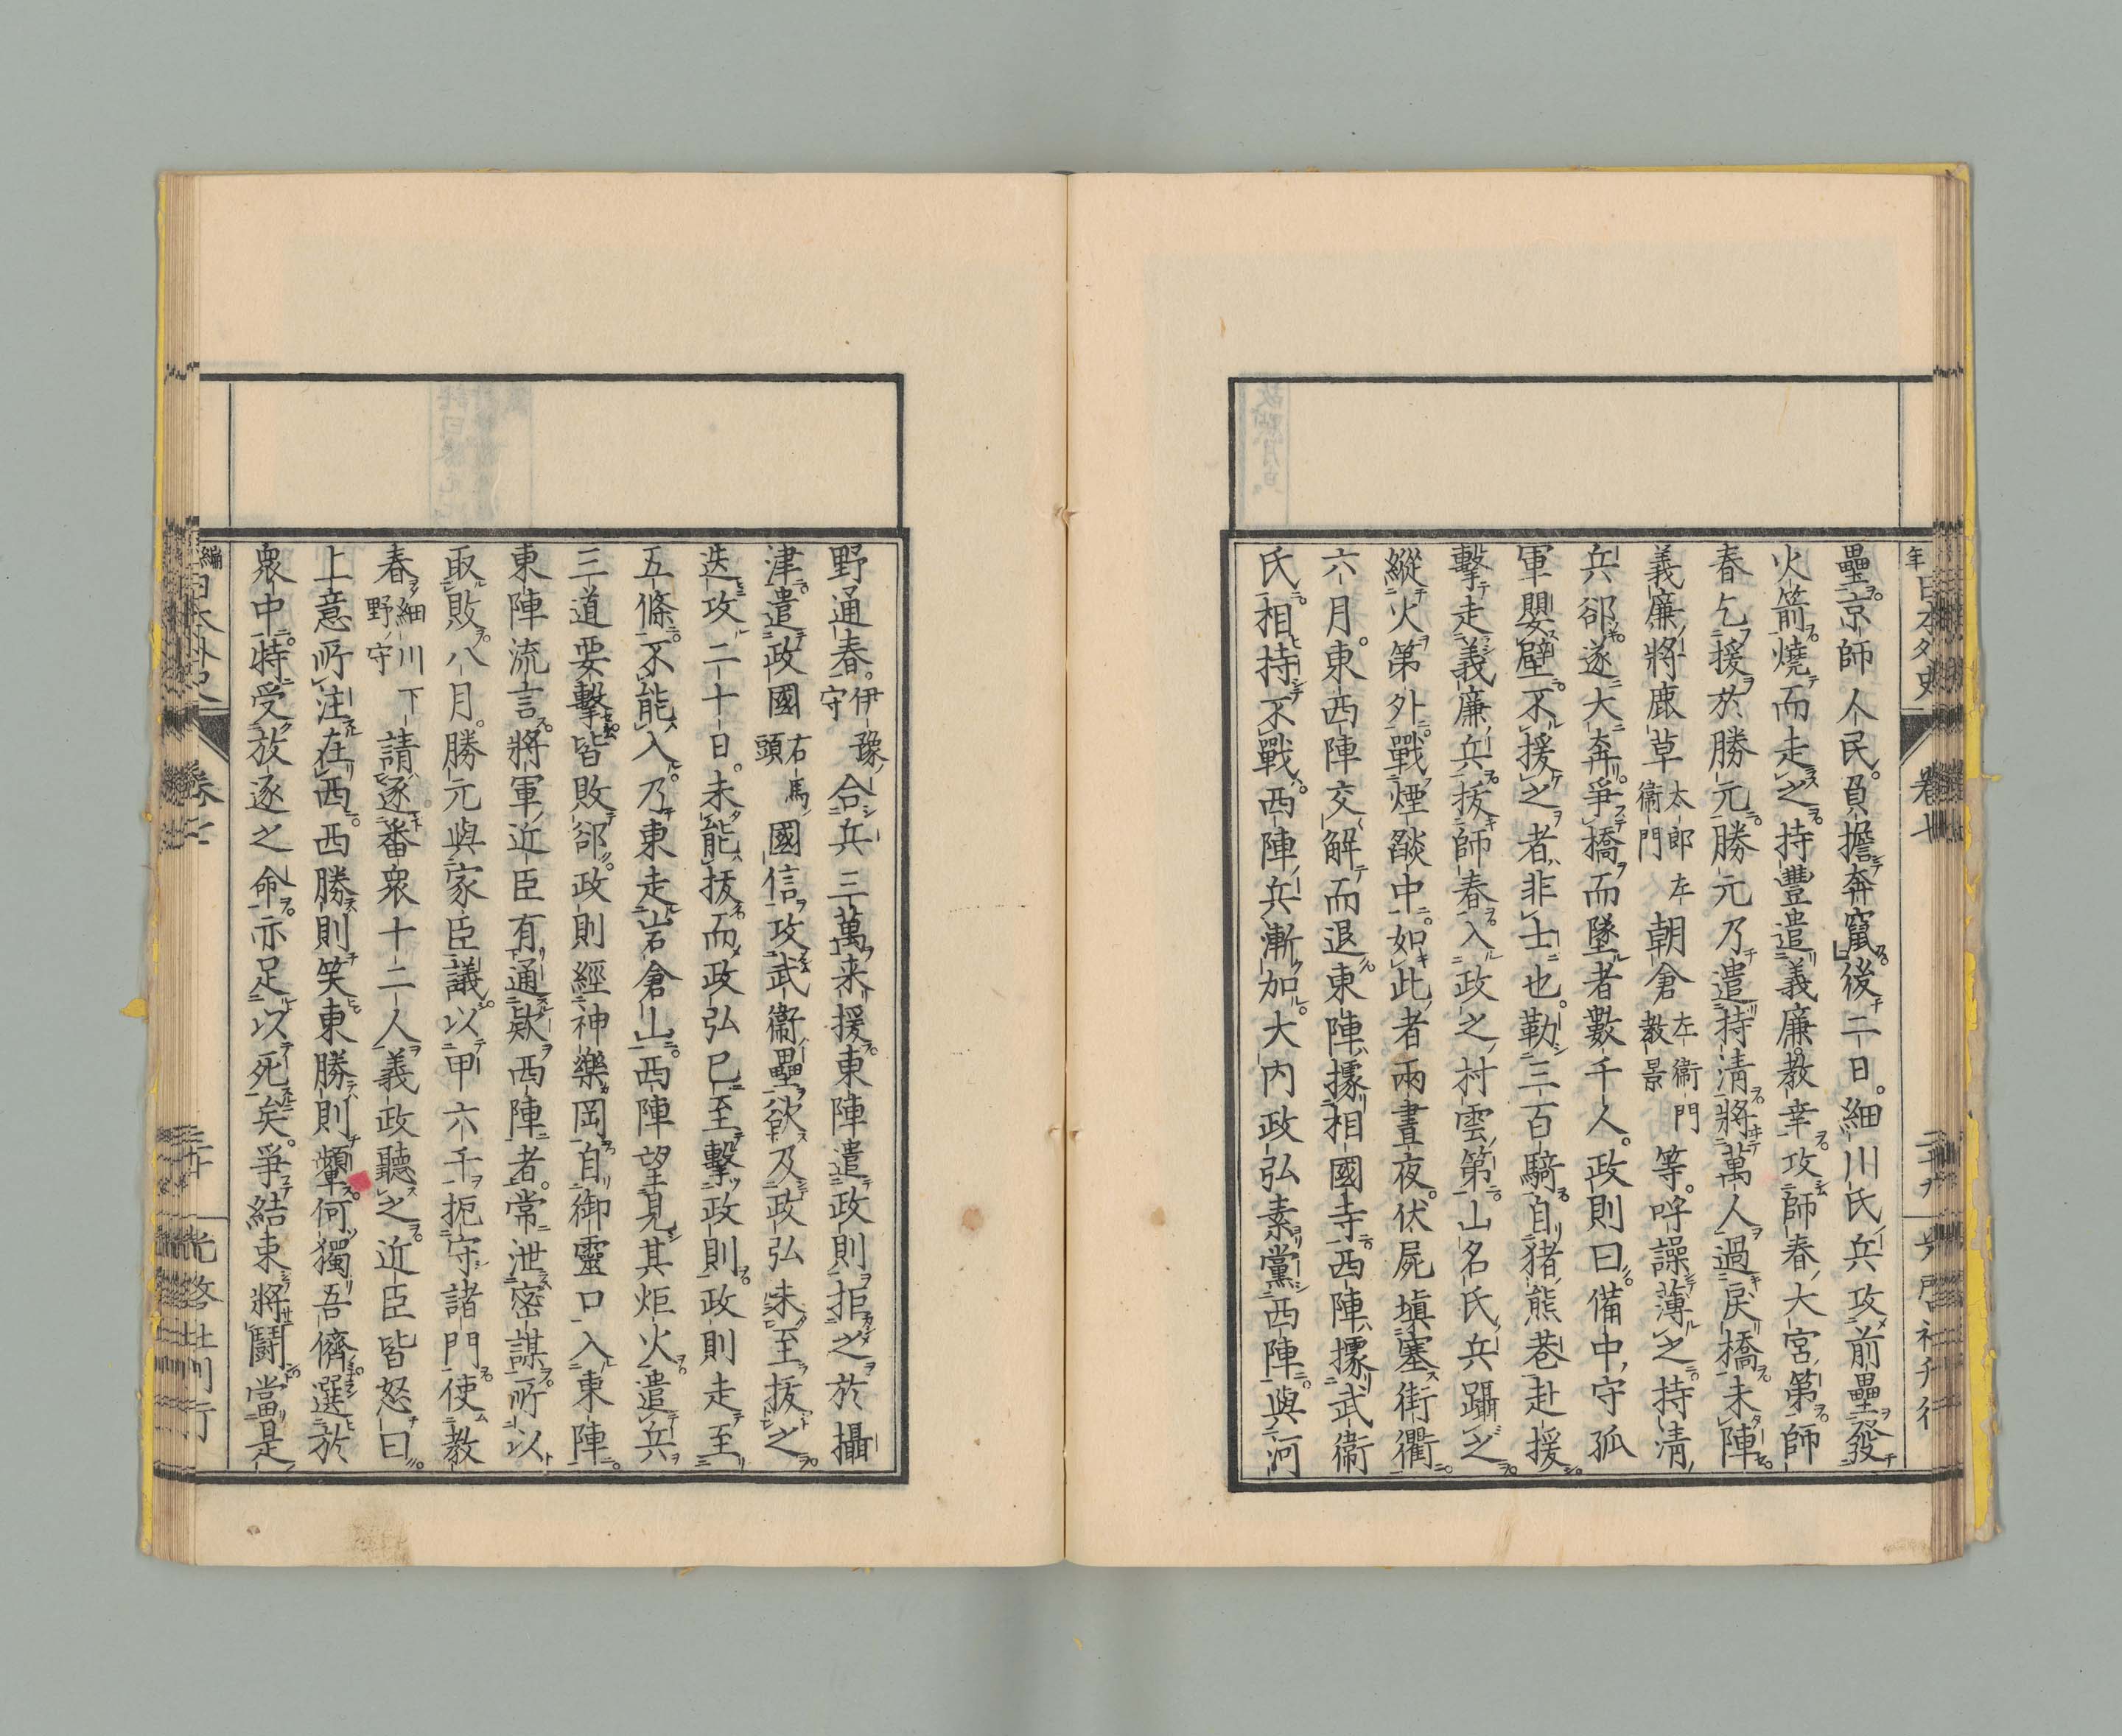 壘京師人民。負擔奔竄。後二日。細川氏兵攻前壘發
火箭燒而走之。持豐遣義廉教幸攻師春大宮第。師
春乞援於勝元。勝元乃遣持清將萬人過戻橋。未陣。
義廉將鹿草太郎左衞門朝倉左衞門教景等。呼譟薄之。持清
兵郤。遂大奔。爭橋而墜者數千人。政則曰。備中守孤
軍嬰壁。不援之者。非士也。勒三百騎。自猪熊巷赴援。
擊走義廉兵。拔師春入政之村雲第。山名氏兵躡之。
縱火第外。戰煙燄中。如此者兩晝夜。伏屍塡塞街衢。
六月。東西陣交解而退。東陣據相國寺。西陣據武衞
氏。相持不戰。西陣兵漸加。大内政弘素黨西陣。與河
野通春。伊豫守合兵三萬来援。東陣遣政則拒之於攝
津。遣政國右馬頭國信攻武衞壘。欲及政弘未至拔之。
迭攻二十日。未能拔。而政弘已至。擊政則。政則走至
五條。不能入。乃東走岩倉山。西陣望見其炬火。遣兵
三道要擊。皆敗郤。政則經神樂岡。自御靈口入東陣。
東陣流言。將軍近臣有通欵西陣者。常泄密謀。所以
取敗。八月。勝元與家臣議。以甲六千扼守諸門。使教
春細川下野守請逐番衆十二人。義政聽之。近臣皆怒曰。
上意所注在西。西勝則笑。東勝則顰。何獨吾儕。選於
衆中。特受放逐之命。亦足以死矣。爭結束將鬪。當是